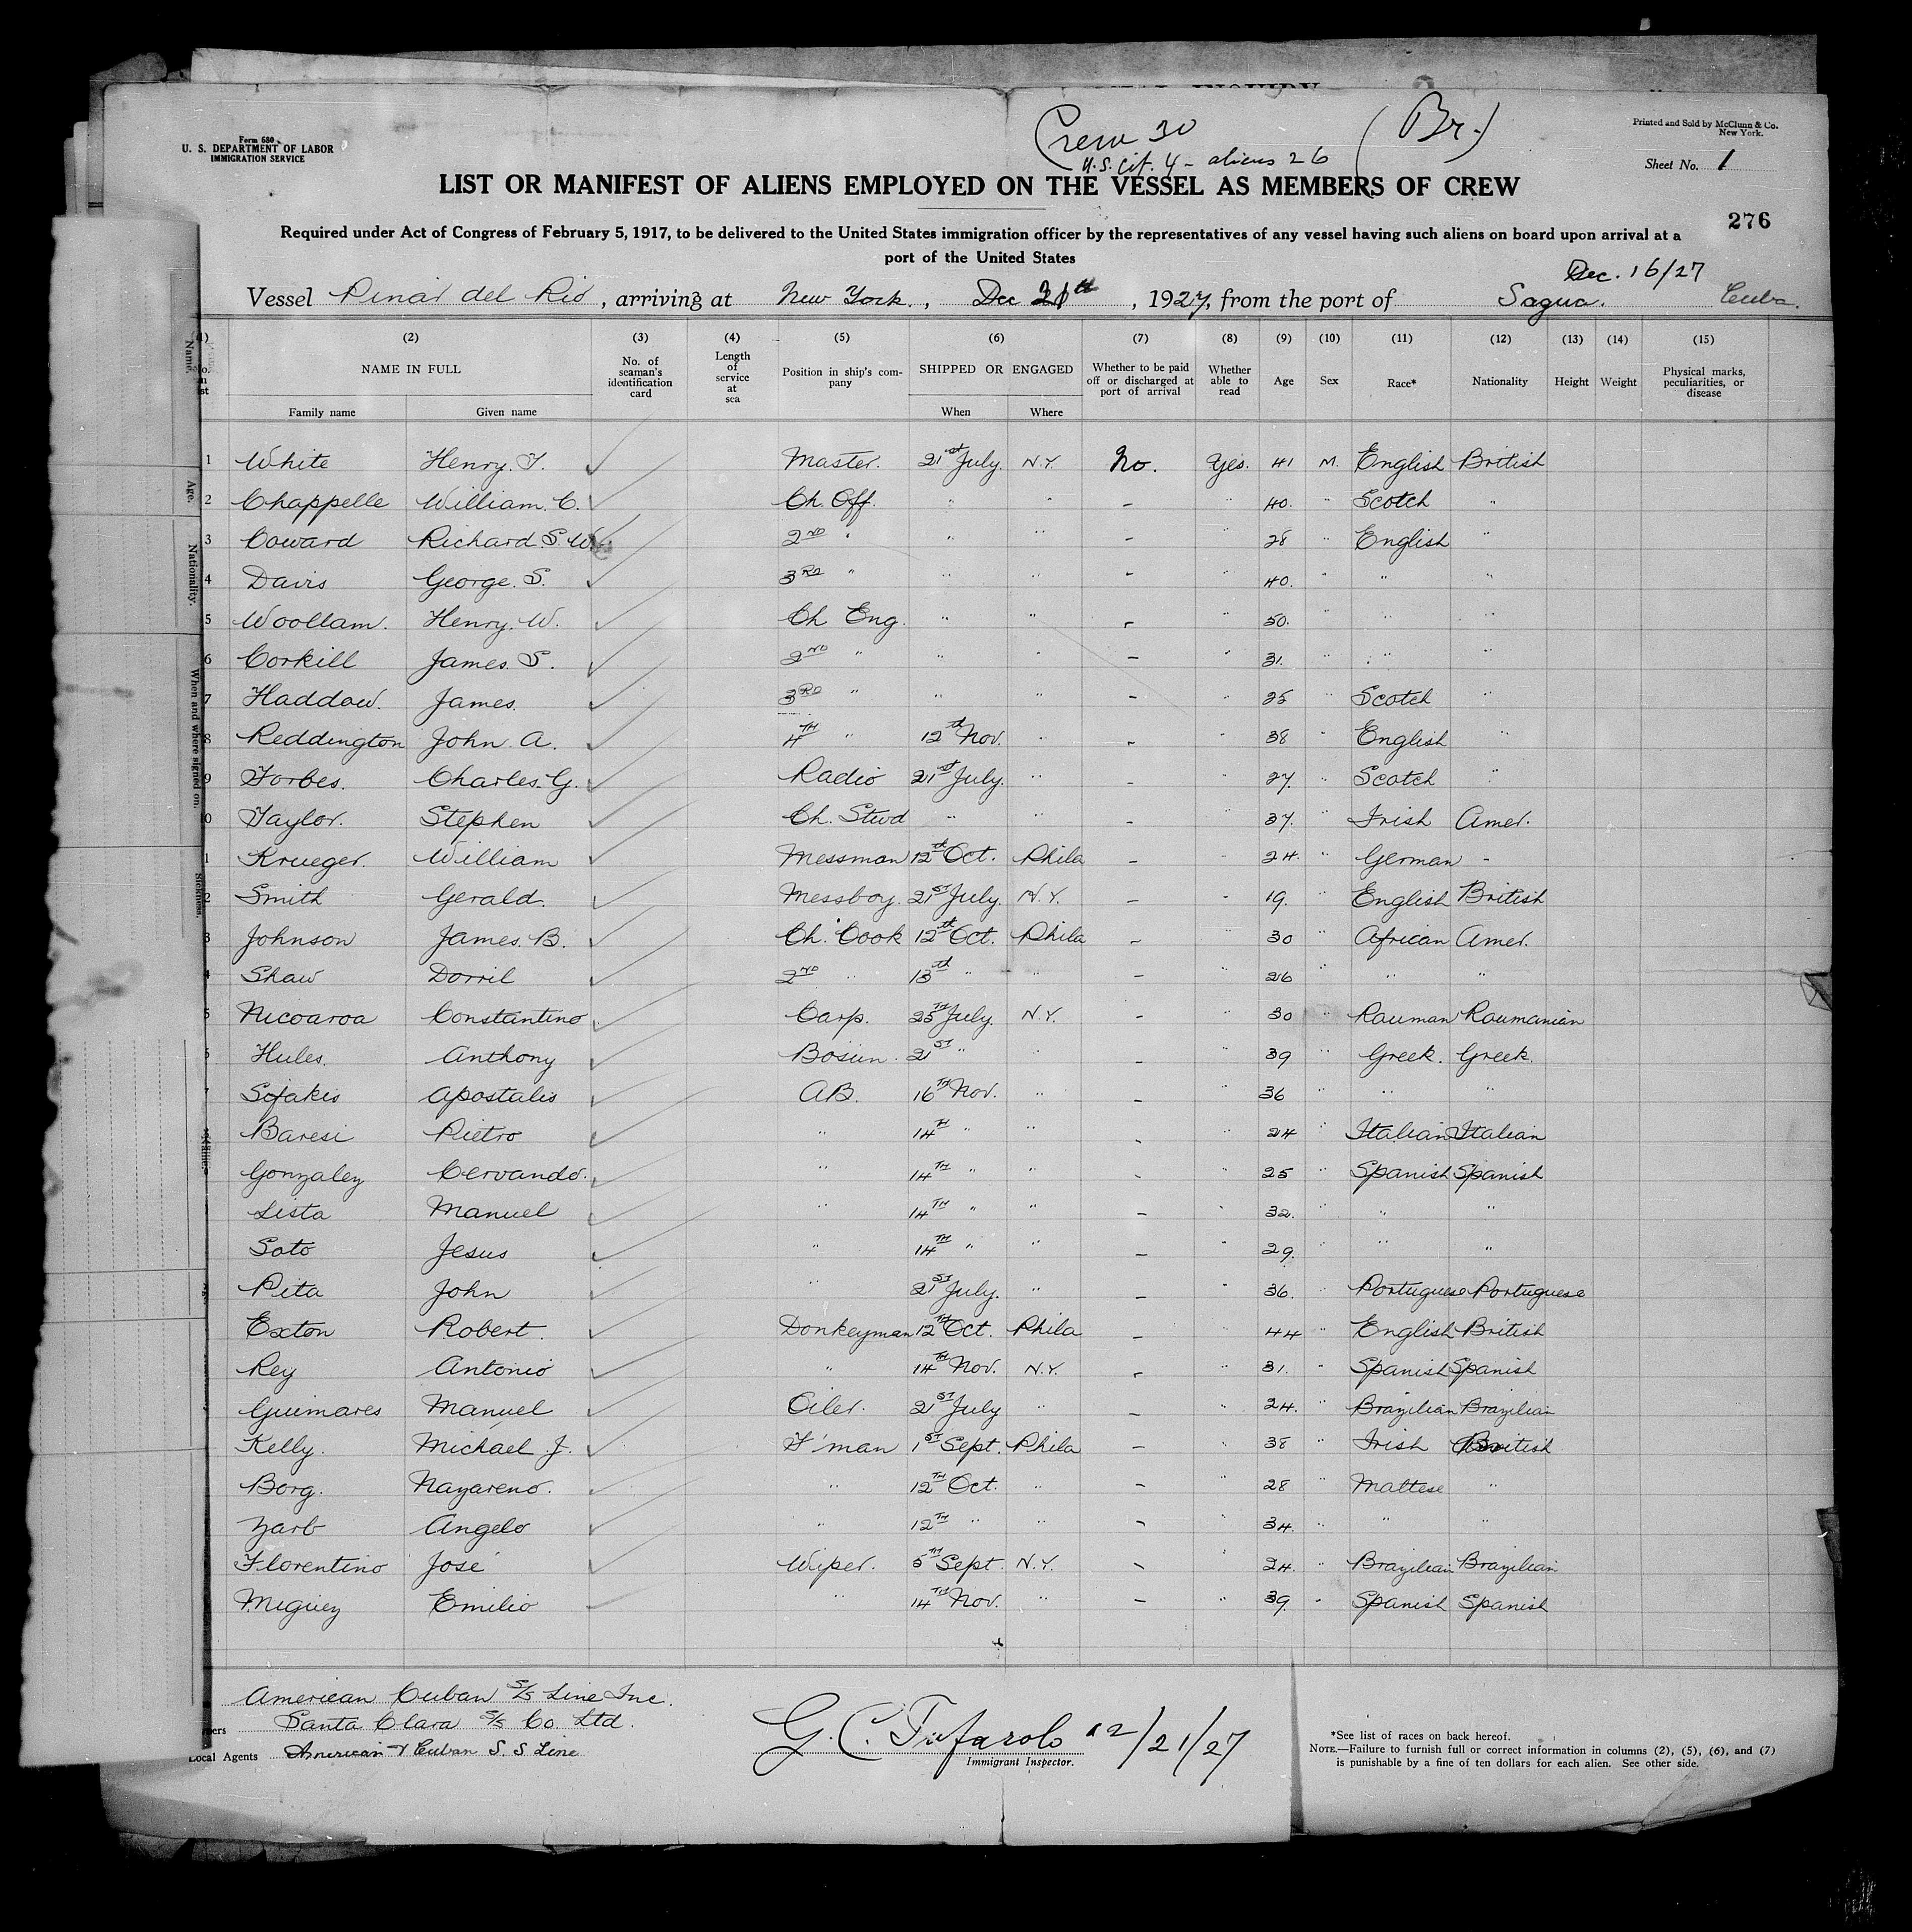 Crew 30
(Br.)
U.S. Cit. 4 - aliens 26
Form 680
U. S. DEPARTMENT OF LABOR
IMMIGRATION SERVICE
Printed and Sold by McClunn & Co.
New York.
Sheet No. 1
LIST OR MANIFEST OF ALIENS EMPLOYED ON THE VESSEL AS MEMBERS OF CREW
276
Required under Act of Congress of February 5, 1917, to be delivered to the United States immigration officer by the representatives of any vessel having such aliens on board upon arrival at a
port of the United States
Dec. 16/27
Vessel Pinar del Rio, arriving at New York., Dec 21th, 1927, from the port of Sagua. Cuba.
(2) (3) (4) (5) (6) (7) (8) (9) (10) (11) (12) (13) (14) (15)
NAME IN FULL
Family name Given name
No. of seaman's identification card
Length of service at sea
Position in ship's company
SHIPPED OR ENGAGED
When Where
Whether to be paid off or discharged at port of arrival
Whether able to read
Age
Sex
Race*
Nationality
Height
Weight
Physical marks, peculiarities, or disease
Name.
Age.
Nationality.
When and where signed on.
Sickness.
1 White Henry. T. Master. 21st July. N.Y. No. Yes. 41 M. English British
2 Chappelle William. C. Ch. Off. " " - " 40. " Scotch "
3 Coward Richard. S. W. 2ND " " " - " 28 " English "
4 Davis George. S. 3RD " " " - " 40. " " "
5 Woollam. Henry. W. Ch Eng. " " - " 50. " "
6 Corkill James. S. 2ND " " " - " 31. " " "
7 Haddow. James. 3RD " " " - " 25 " Scotch "
8 Reddington John A. 4TH " 12th Nov. " - " 38 " English "
9 Forbes. Charles. G. Radio 21st July. " - " 27. " Scotch "
0 Taylor. Stephen Ch. Stwd " " - " 37. " Irish Amer.
1 Krueger. William Messman 12th Oct. Phila - " 24. " German -
2 Smith Gerald. Messboy. 21ST July. N.Y. - " 19. " English British
3 Johnson James. B. Ch. Cook 12th Oct. Phila - " 30 " African Amer.
4 Shaw Dorril 2ND " 13th " " - " 26 " " "
5 Nicoaroa Constantino Carp. 25TH July. N.Y. - " 30 " Rouman Roumanian
6 Hules. Anthony Bosun. 21ST " " - " 39 " Greek. Greek.
7 Sofakis Apostalis AB. 16TH Nov. " - " 36 " " "
Baresi Pietro " 14TH " " - " 24 " Italian Italian
Gonzaley Cervando. " 14TH " " - " 25 " Spanish Spanish
Lista Manuel " 14TH " " - " 32. " " "
Soto Jesus " 14TH " " - " 29. " " "
Pita John " 21ST July. " - " 36. " Portuguese Portuguese
Exton Robert. Donkeyman 12TH Oct. Phila - " 44 " English British
Rey Antonio " 14TH Nov. N.Y. - " 31. " Spanish Spanish
Guimares Manuel Oiler. 21ST July " - " 24. " Brazilian Brazilian
Kelly. Michael. J. F'man 1ST Sept. Phila - " 38 " Irish British
Borg. Nazareno. " 12TH Oct. " - " 28 " Maltese "
Zarb Angelo " 12TH " " - " 34. " " "
Florentino José Wiper. 5TH Sept. N.Y. - " 24. " Brazilian Brazilian
Miguez Emilio " 14TH Nov. " - " 39. " Spanish Spanish
American Cuban S/S Line Inc.
Santa Clara S/S Co. Ltd.
Local Agents American & Cuban S. S Line
G. C. Tufarolo 12/21/27
Immigrant Inspector.
*See list of races on back hereof.
NOTE.—Failure to furnish full or correct information in columns (2), (5), (6), and (7)
is punishable by a fine of ten dollars for each alien. See other side.